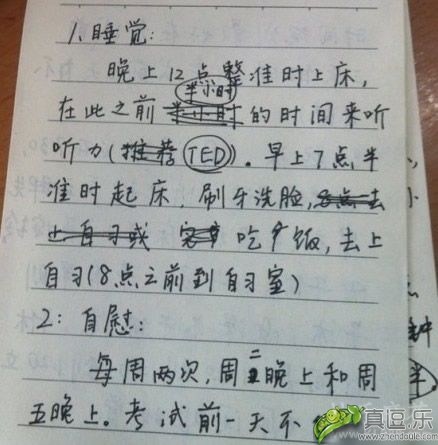 1、睡觉:
晚上12点整准时上床,
半小时
在此之前半小时的时间来听
听力(推荐TED)。早上7点半
准时起床,刷牙洗脸,8点去
上自习或 吃饭,去上
自习(8点之前到自习室)
2:自慰:
每周两次,周二晚上和周
五晚上。考试前一天不
钟
半
真逗.乐
www.zhendoule.com